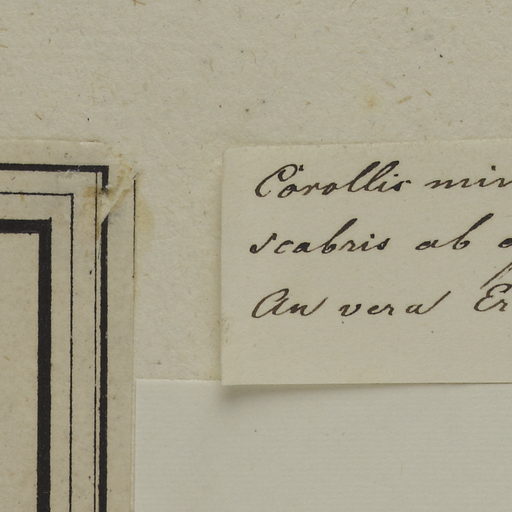 Corollis min
scabris ab
An vera Er